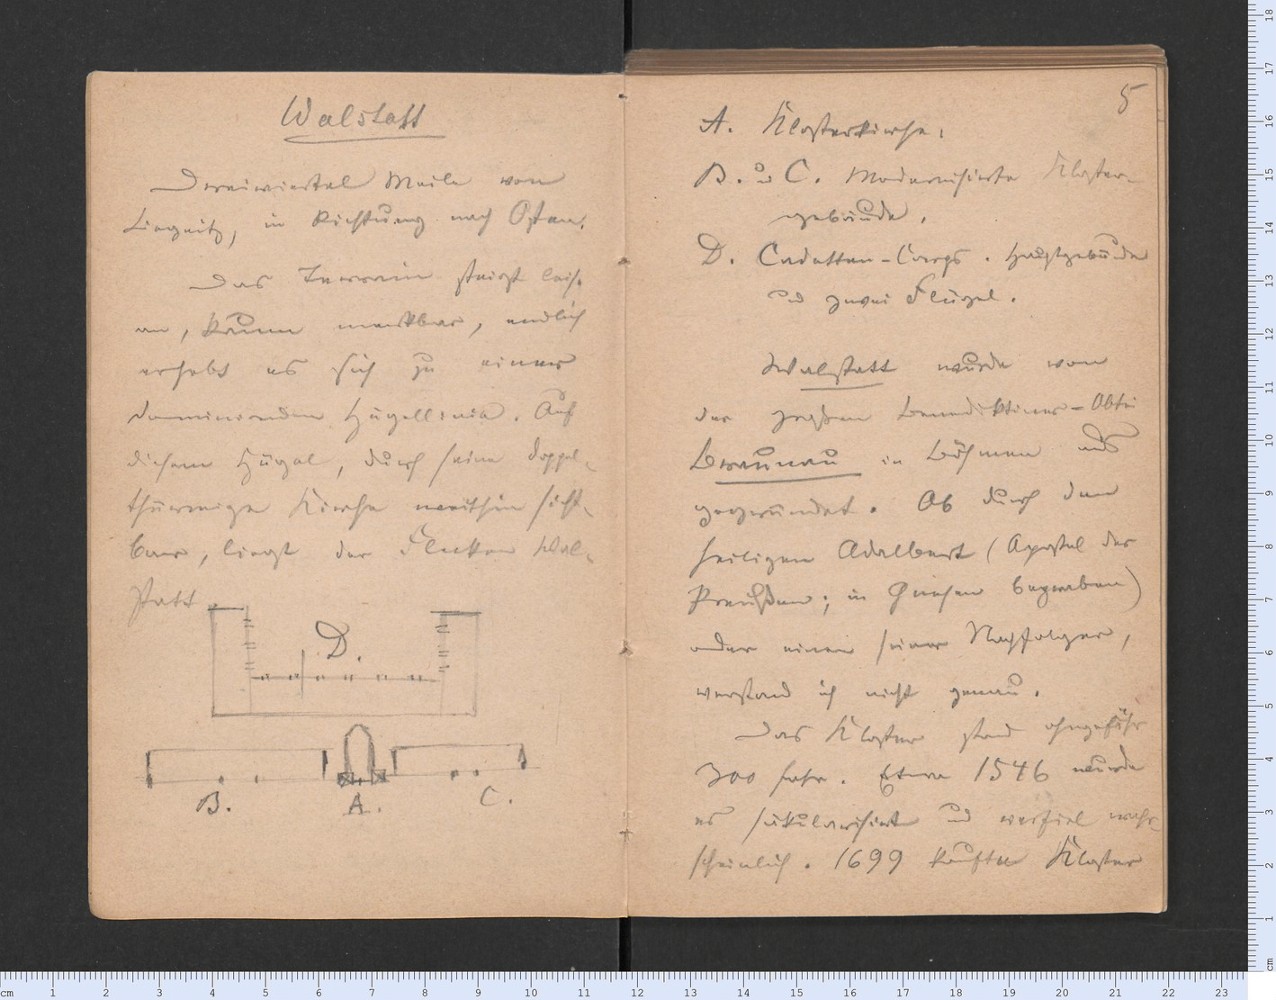 Walstatt
Dreiviertel Meile von
Liegnitz, in Richtung nach Osten.
Das Terrain steigt leise
an, kaum merkbar, endlich
erhebt es sich zu einer
dominirenden Hügellinie. Auf
diesem Hügel, durch seine doppel-
thürmige Kirche weithin sicht-
bar, liegt der Flecken Wal-
statt.
D.
B. A. C.
5
A. Klosterkirche.
B. u C. Modernisirte Kloster-
gebäude.
D. Cadetten-Corps. Hauptgebäude
und zwei Flügel.
Walstatt wurde von
der großen Benediktiner-Abtei
Braunau in Böhmen aus
gegründet. Ob durch den
heiligen Adalbert (Apostel der
Preußen; in Gnesen begraben)
oder einen seiner Nachfolger,
verstand ich nicht genau.
Das Kloster stand ohngefähr
300 Jahr. Etwa 1546 wurde
es säkularisirt und verfiel wahr-
scheinlich. 1699 kaufte Kloster